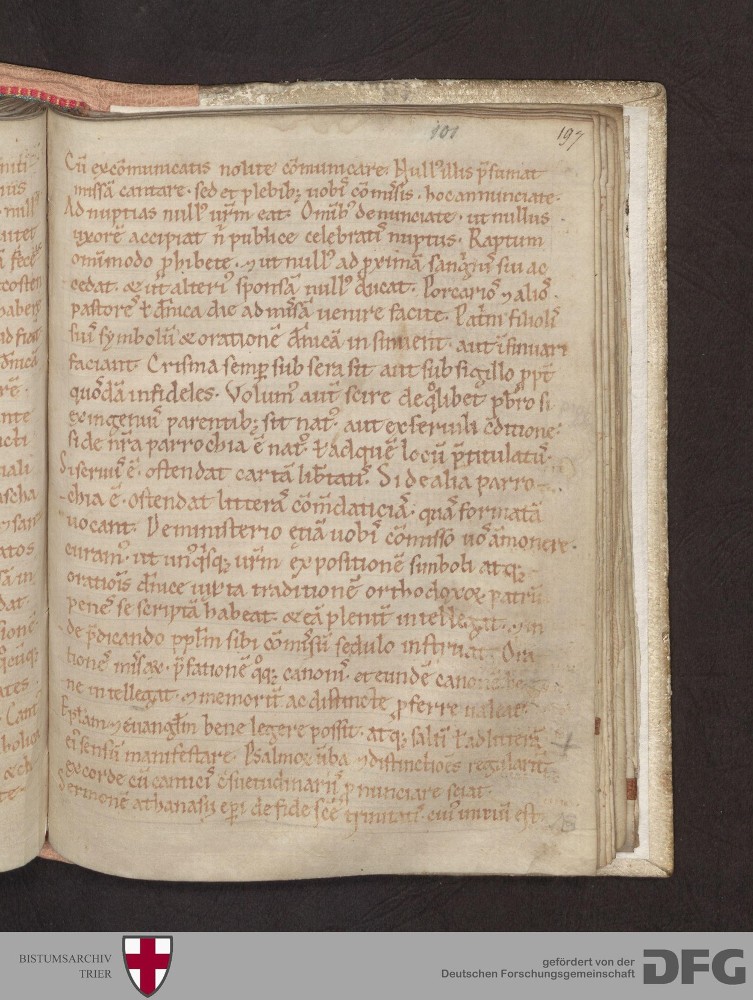 101
197
Cū excōmunicatis nolite cōmunicare. Null' illis p̄sumat
missā cantare. sed et plebib; uobis cōmissis. hoc annunciate.
Ad nuptias null' ur̄m eat. Omīb' denunciate. ut nullus
uxorē accipiat n̄ publice celebratis nuptiis. Raptum
omnimodo phibete. ⁊ ut null' ad proximā sanguinis sui ac
cedat. & ut alteri' sponsā null' ducat. Porcarios ⁊ alios
pastores ł dn̄ica die ad missā uenire facite. Patrini filiolis
suis symbolū & orationē dn̄icā insinuent. aut insinuari
faciant. Crisma semp sub sera sit aut sub sigillo ppt̄
quosdā infideles. Volum' aut̄ scire de q°libet pb̄ro si
ex ingenuis parentib; sit nat'. aut ex seruili cditione.
si de nr̄a parrochia ē nat'. ł ad quē locū p̄titulat'.
Si seruus ē. ostendat cartā lib̄tatis. Si de alia parro-
chia ē. ostendat litterā cōmdaticiā. quā formatā
uocant. De ministerio etiā uobis cōmisso uos āmonere
curam'. ut un'q'sq; ur̄m expositionē simboli atq;
orationis dn̄ice iuxta traditionē orthodoxoꝝ patrū
penes se scriptā habeat. & eā plenit' intellegat. ⁊ in
de p̄dicando pplm̄ sibi cōmissū sedulo instruat. Ora
tiones missaꝝ. p̄fationē q°q; canonis. et eundē canonē
ne intellegat. ⁊ memorit' ac distincte pferre ualeat.
Epl̄am ⁊ euangl̄m bene legere possit. atq; saltī ł ad litterā
ei' sensū manifestare. Psalmoꝝ ūba ⁊ distinctiōes regularit'
ex corde cū canticis c̄suetudinariis pnunciare sciat.
Sermonē athanasii epi de fide scē trinitatis. cui' iniciū est.
BISTUMSARCHIV
TRIER
gefördert von der
Deutschen Forschungsgemeinschaft
DFG